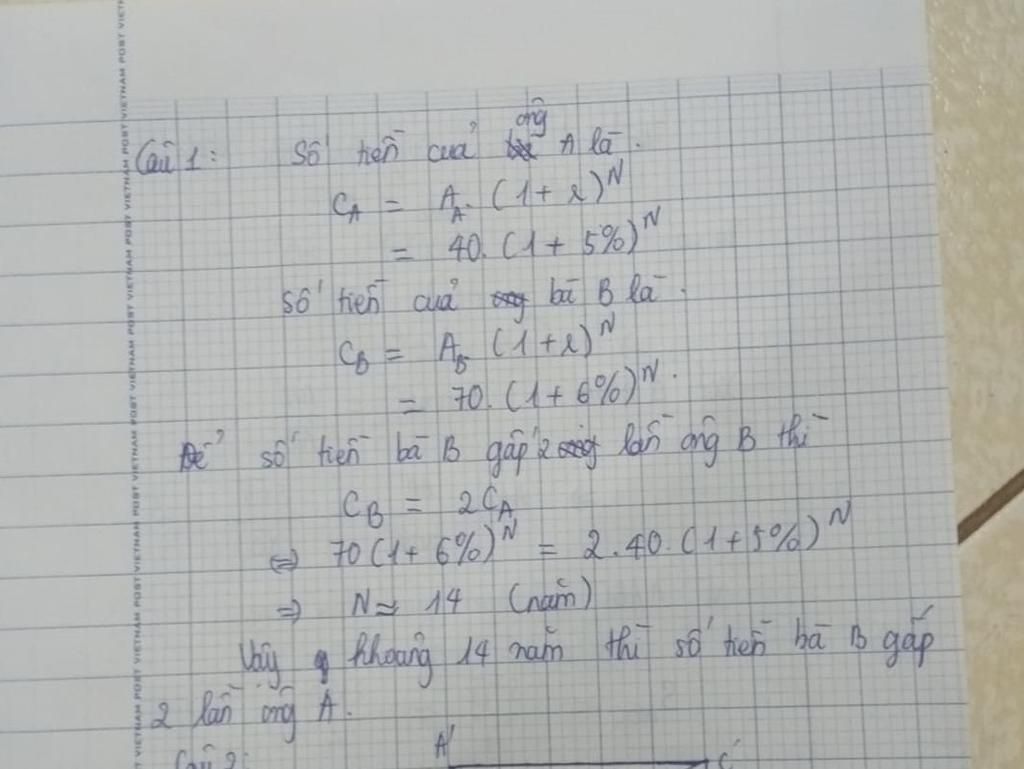 Câu 1: Số tiền của ông A là.
C_A = A_A. (1 + r)^N
= 40. (1 + 5%)^N
Số tiền của bà B là.
C_B = A_B (1 + r)^N
= 70. (1 + 6%)^N.
Để số tiền bà B gấp 2 lần ông B thì
C_B = 2C_A
⇔ 70(1 + 6%)^N = 2.40.(1+5%)^N
⇒ N ≈ 14 (năm)
Vậy khoảng 14 năm thì số tiền bà B gấp
2 lần ông A.
Câu 2:
A'
C'
VIETNAM POST VIETNAM POST VIETNAM POST VIETNAM POST VIETNAM POST